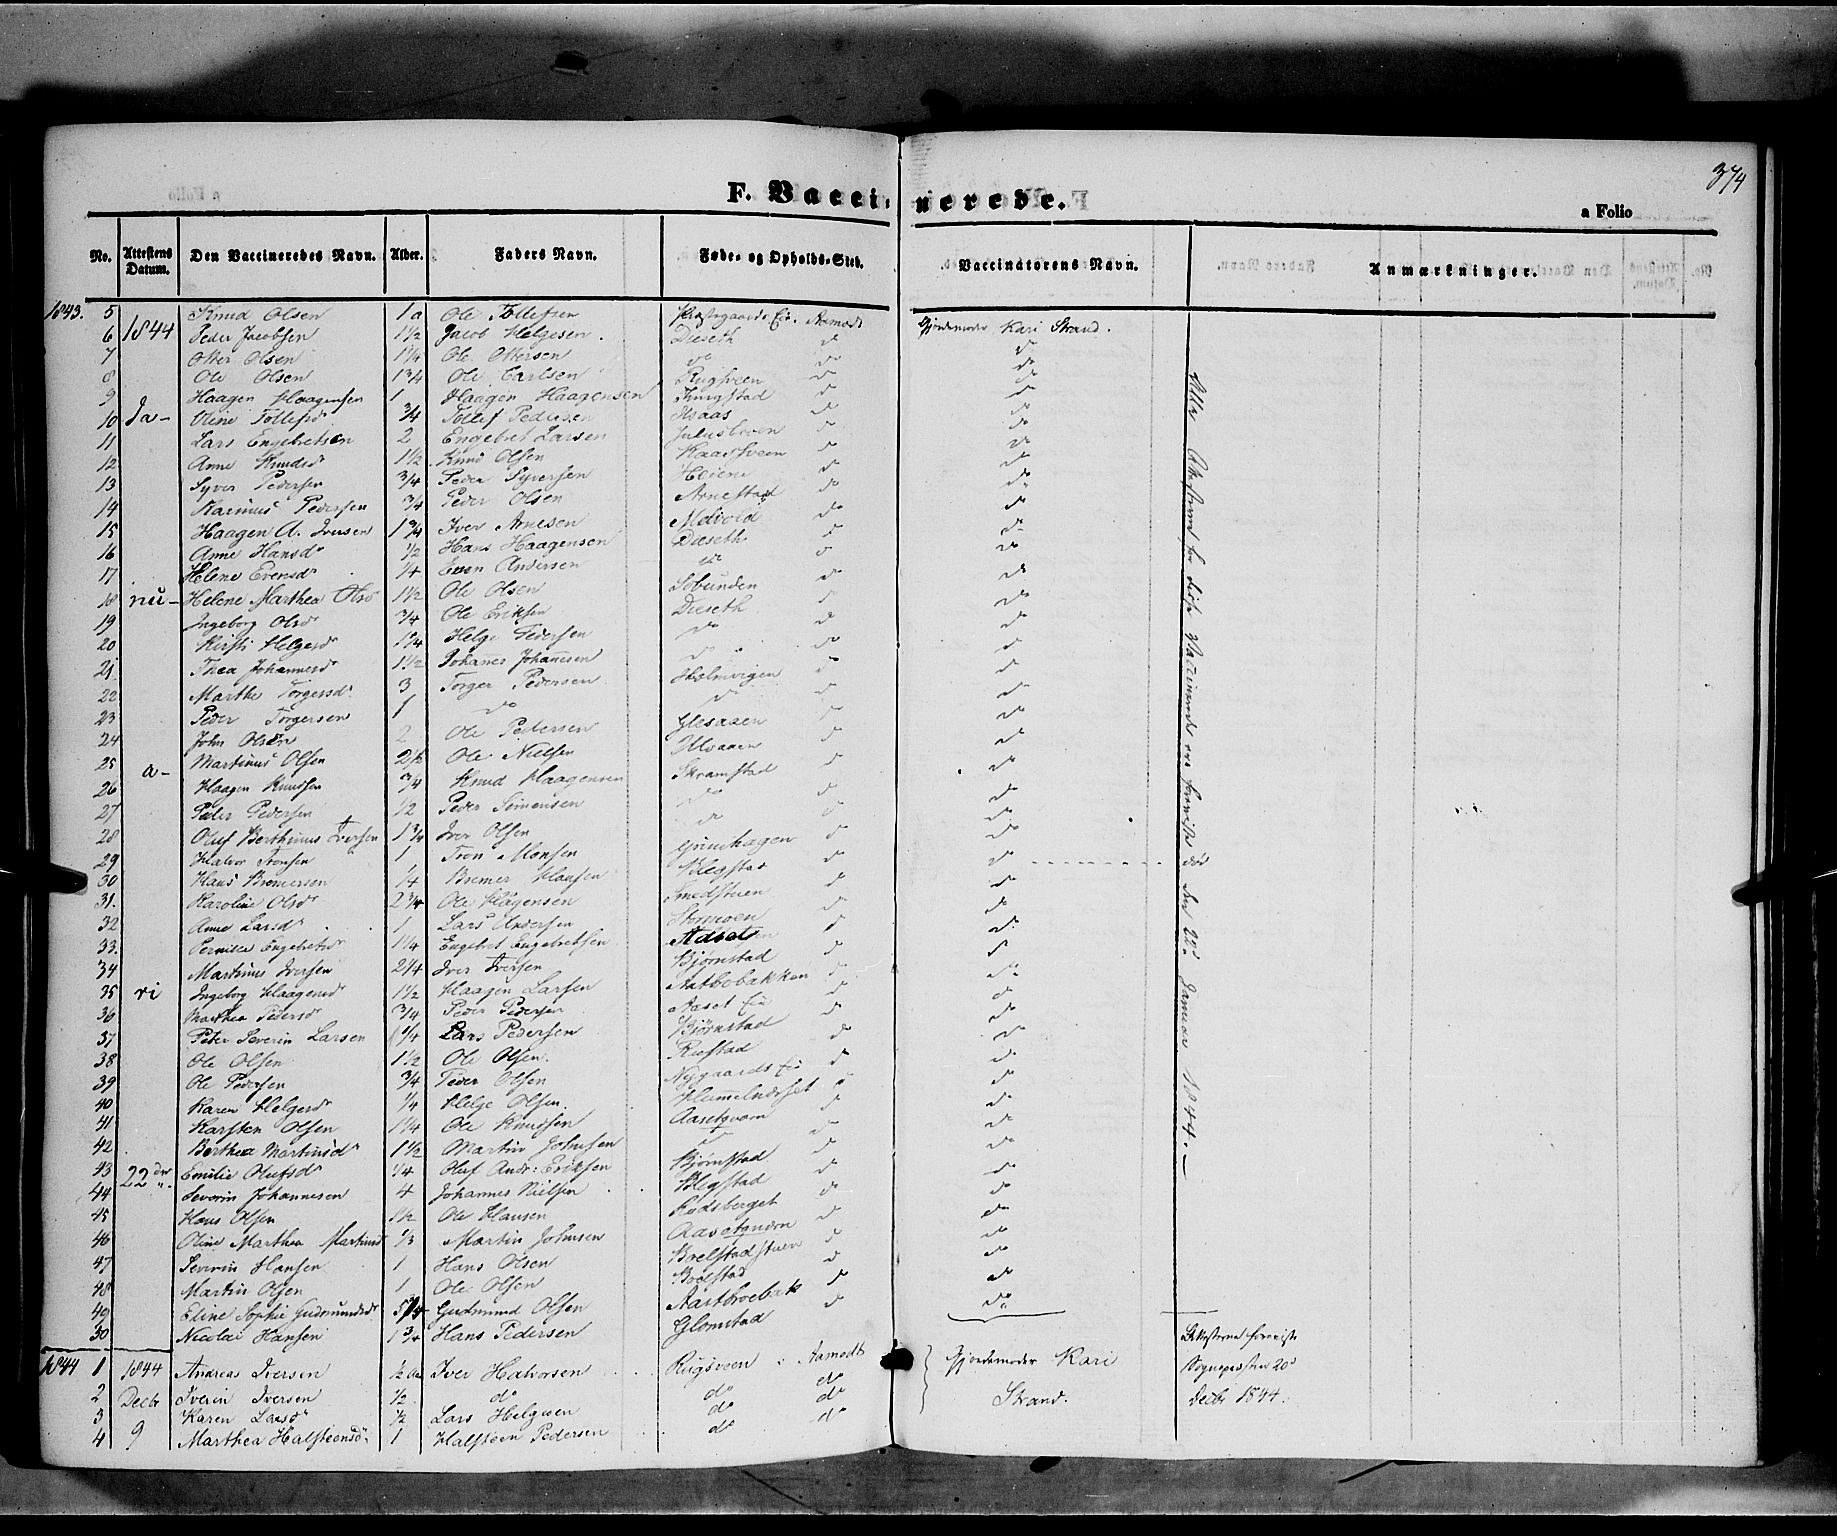 374
F. Vaccinerede.
a Folio
No. Attestens Datum. Den Vaccineredes Navn. Alder. Faders Navn. Føde- og Opholds-Sted. Vaccinatorens Navn. Anmærkninger.
1843. 5 Knud Olsen 1 a Ole Tollefsen Præstgaards Eie. Aamodt
6 1844 Peder Jacobsen 1 1/2 Jacob Helgesen. Dieseth do Gjordemoder Kari Strand.
7 Otter Olsen 1 1/4 Ole Ottersen do do do
8 Ole Olsen 1 3/4 Ole Carlsen Rugsveen do do
9 Haagen Haagensen 1 Haagen Haagensen Kingstad do do
10 Ja- Oline Tollefsd 3/4 Tollef Pedersen Asaas do do
11 Lars Engebretsen 2 Engebret Larsen do do
12 Anne Knudsd 1 1/2 Knud Olsen Kaasveen do do
13 Syver Pedersen 3/4 Peder Syversen do do
14 Rasmus Pedersen 3/4 Peder Olsen Arnestad do do
15 Haagen A. Iversen 1 3/4 Iver Arnesen Melvold do do
16 Anne Hansd 1/2 Hans Haagensen Dieseth do do
17 Helene Evensd 1/4 Even Andersen do do do
18 nu- Helene Marthea Olsd 1 1/2 Ole Olsen Sobunden do do
19 Ingeborg Olsd 3/4 Ole Eriksen Dieseth do do
20 Kirsti Helgesd 1 3/4 Helge Pedersen do do do
21 Thea Johannesd 1 1/2 Johannes Johannesen do do do
22 Marthe Torgersd 3 Torger Pedersen Holmvigen do do
23 Peder Torgersen 1 do do do do
24 John Olsen 2 Ole Pedersen Glesaaen do do
25 a- Martinus Olsen 2 1/2 Ole Nielsen Ulvaaen do do
26 Haagen Knudsen 3/4 Knud Haagensen Skramstad do do
27 Peder Pedersen 1/2 Peder Simensen do do do
28 Oluf Berthinus Iversen 1 3/4 Iver Olsen do do do
29 Halvor Tronsen 1 Tron Monsen Grinhagen do do
30 Hans Bremersen 1/4 Bremer Hansen Blegstad do do
31. Karoline Olsd 2 3/4 Ole Hagensen Smedstuen do do
32 Anne Larsd 1 Lars Andersen Stormoen do do
33. Pernille Engebretsd 1 1/4 Engebret Engebretsen do do
34 Martinus Iversen 2 1/4 Iver Iversen Bjørnstad do do
35 ri Ingeborg Haagensd 1 1/2 Haagen Larsen Aastbobakken do do
36 Marthea Pedersd 3/4 Peder Pedersen Aaset Eie do do
37 Peter Severin Larsen 1/4 Lars Pedersen Bjørnstad do do
38 Ole Olsen 1 1/2 Ole Olsen. Riostad do do
39 Ole Pedersen 3/4 Peder Olsen Nygaards Eie do do
40 Karen Helgesd 1/4 Helge Olsen. do do
41 Karsten Olsen 1 1/4 Ole Knudsen Aasetqværn do do
42 Berthea Martinusd 1 1/2 Martin Johnsen do do do
43 22 den Emilie Olufsd 1/4 Oluf Andr: Eriksen Bjørnstad do do
44 Severin Johannesen 4 Johannes Nielsen Blegstad do do
45 Hans Olsen 1 1/2 Ole Hansen Rodsberget do do
46 Oline Marthea Martinsd 1/3 Martin Johnsen Aasetqværn do do
47 Severin Hansen 1 Hans Olsen Bolstadstuen do do
48 Martin Olsen 1 Ole Olsen Bolstad do do
49 Eline Sophie Gudmundsd 5 1/4 Gudmund Olsen Aastbroebak do do
30 Nicolai Hansen 1 3/4 Hans Pedersen Glomstad do do
Alle Attesterne for disse Vaccinerede ere foreviste den 22. Januar 1844.
1844 1 1844 Andreas Iversen 1/2 Aar Iver Halvorsen Rugsveen Aamodt Gjordemoder Kari Strand. Attesterne foreviste Sognepræsten 20d Decbr 1844.
2 Decbr Iverin Iversen 1/2 do do do
3 9 Karen Larsd 1/2 Lars Helgesen do do
4 Marthea Halsteensd. 1 Halsteen Pedersen do do